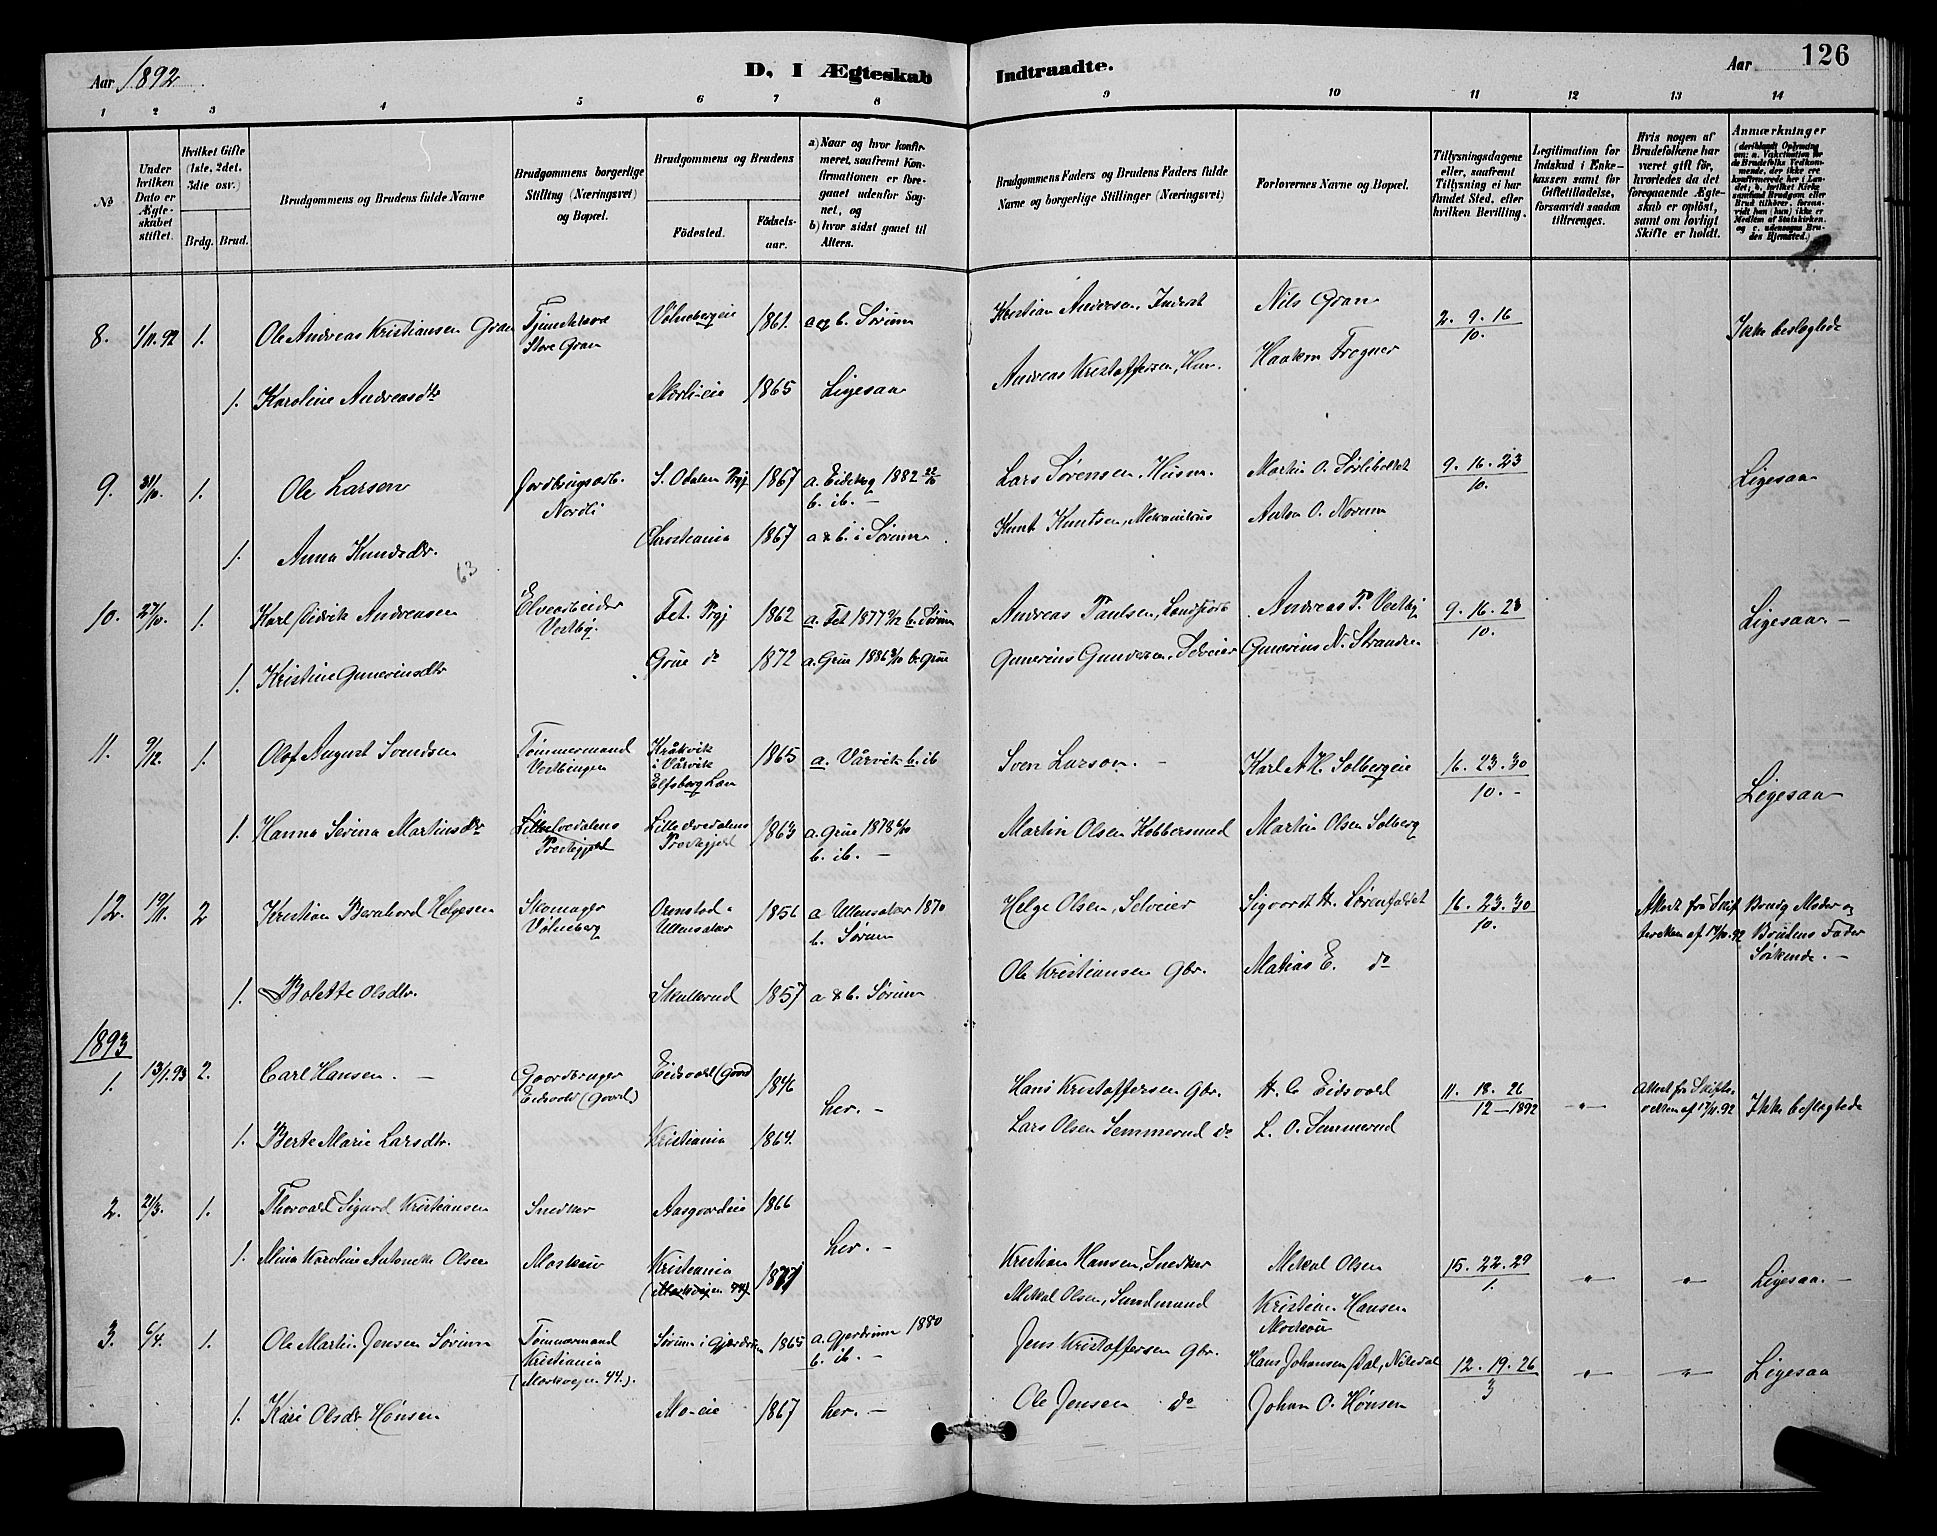 126
Aar 1892
D. I Ægteskab Indtraadte.
Aar
1 2 3 4 5 6 7 8 9 10 11 12 13 14
No
Under hvilken Dato er Ægteskabet stiftet.
Hvilket Gifte (1ste, 2det, 3die osv.)
Brdg. Brud.
Brudgommens og Brudens fulde Navne
Brudgommens borgerlige Stilling (Næringsvei) og Bopæl.
Brudgommens og Brudens
Fødested. Fødselsaar.
a) Naar og hvor konfirmeret, saafremt Konfirmationen er foregaaet udenfor Sognet, og
b) hvor sidst gaaet til Alters.
Brudgommens Faders og Brudens Faders fulde Navne og borgerlige Stillinger (Næringsvei)
Forlovernes Navne og Bopæl.
Tillysningsdagene eller, saafremt Tillysning ei har fundet Sted, efter hvilken Bevilling.
Legitimation for Indskud i Enkekassen samt for Giftetilladelse, forsaavidt saadan tiltrænges.
Hvis nogen af Brudefolkene har været gift før, hvorledes da det foregaaende Ægteskab er opløst, samt om lovligt Skifte er holdt.
Anmærkninger
8. 1/11.92 1. Ole Andreas Kristiansen Gran Tjenestekarl Store Gran Vølnebergeie 1861. a og b. Sørum Kristian Andersen, Inderst Nils Gran 2. 9. 16 / 10. Ikke beslægtede
1. Karoline Andreasdtr Nordli-eie 1865 Ligesaa Andreas Kristoffersen, Hus. Haakon Frogner
9. 31/10. 1. Ole Larsen Jordbrugsarb. Nordli S. Odalen Prgj 1867 a. Eidskog 1882 22/10 b. ib. — Lars Sørensen, Husm. Martin O. Sørliholtet 9. 16. 23 / 10. Ligesaa
1. Anna Knudsdtr. Christiania 1867 a & b. i Sørum Knut Knutsen, Mekanikus Anton O. Norum
63
10. 27/10. 1. Karl Didrik Andreasen Elvearbeider Vestby. Fet. Prgj 1862 a. Fet 1877 9/12 b. Sørum Andreas Paulsen, Landhandl. Andreas P. Vestby 9. 16. 23 / 10. Ligesaa —
1. Kristine Guneriusdtr Grue do 1872 a. Grue 1886 3/10 b. Grue Gunerius Gundersen, Selveier Gunerius N. Stranden
11. 9/12. 1. Olof August Svendsen Tømmermand Vestbingen Kråkvik i Vårvik Elfsborg Län 1865 a. Vårvik b. ib Sven Larson. — Karl A. H. Solbergeie 16. 23. 30 / 10. — Ligesaa
1. Hanna Severina Martinsdtr Lilleelvedalens Prestegjeld Lilleelvedalens Prestegjeld 1863 a. Grue 1878 6/10 b. ib. — Martin Olsen Kobbersmed Martin Olsen Solberg
12. 19/11. 2 Kristian Bernhard Helgesen Skomager Vølneberg Ormstad Ullensaker 1856 a Ullensaker 1870 b. Sørum Helge Olsen, Selveier Sigvardt H. Sørenfaldet 16. 23. 30 / 10. Attest fra Skifteretten af 17/10.92 Brudg Moder og Brudens Fader Søskende. —
1. Bolette Olsdtr. Skullerud 1857 a & b. Sørum Ole Kristiansen Gbr. Matias E. do
1893
1. 13/1.93 2. Carl Hansen. — Gaardbruger Eidsvold (Gaard.) Eidsvold (Gaard 1846 her. — Hans Kristoffersen Gbr. H. C. Eidsvold 11. 18. 26 / 12 — 1892 " Attest fra Skifteretten af 17/11.92 Ikke beslægtede
1. Berte Marie Larsdtr. Kristiania 1864. Lars Olsen Semmerud do L. O. Semmerud
2. 21/3. 1. Thorvald Sigurd Kristiansen Snedker Aasgaardeie 1866 her. — Kristian Hansen, Snedker Mikal Olsen 15. 22. 29 / 1. " " Ligesaa. —
1. Mina Karoline Antonette Olsen Moskeie Kristiania (Markvejen 44) 1871 Mikal Olsen, Sundmand Kristian Hansen
3. 6/4. 1. Ole Martin Jensen Sørum Tømmermand Kristiania (Markvejen 44.). Sørum i Gjerdrum 1865 a. Gjerdrum 1880 b. ib. — Jens Kristoffersen Gbr. Hans Johansen Dal, Nitedal 12. 19. 26 / 3 " " Ligesaa
1. Kari Olsdtr Hønsen Mo-eie 1867 her. — Ole Jensen do Johan O. Hønsen